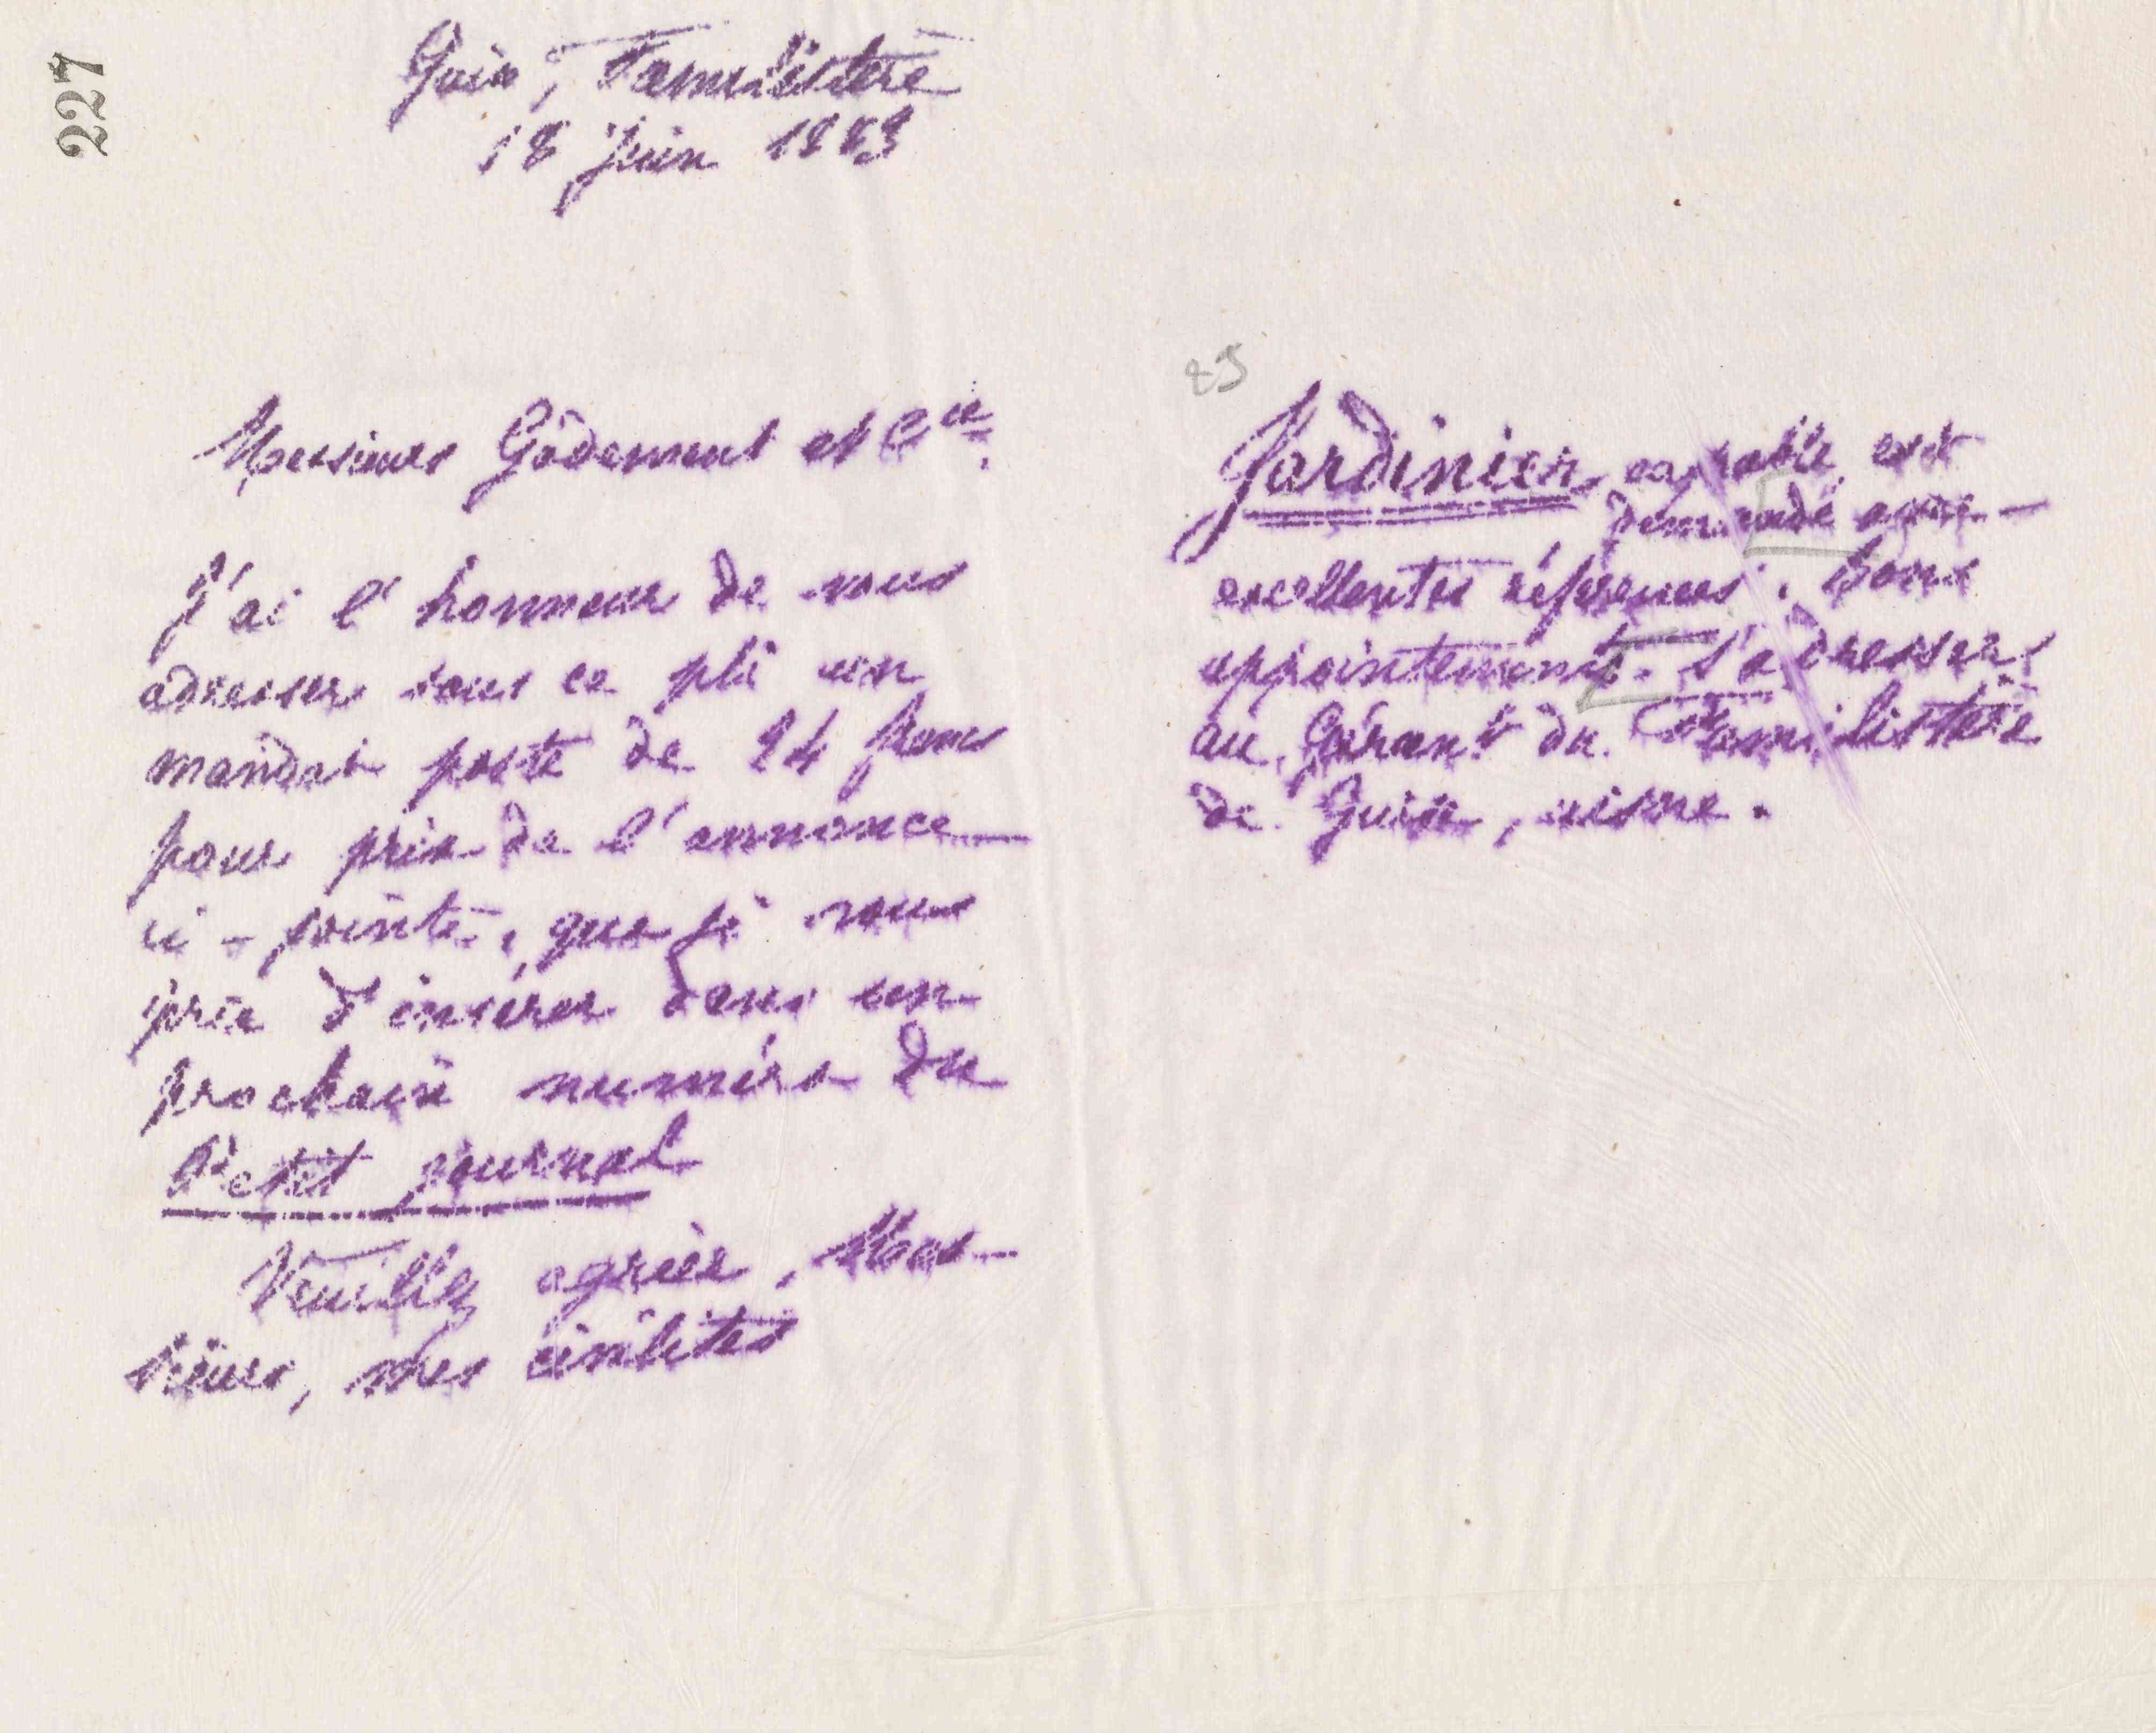 227
Guise, Familistère
18 juin 1883
Messieurs Godement et Cie.
J'ai l'honneur de vous
adresser sous ce pli un
mandat poste de 24 francs
pour prix de l'annonce
ci-jointe, que je vous
prie d'insérer dans un
prochain numéro du
Petit journal
Veuillez agréer, Mes-
sieurs, mes civilités
25
Jardinier capable, est
demandé avec
excellentes références. Bons
appointements. S'adresser
au Gérant du Familistère
de Guise, aisne.